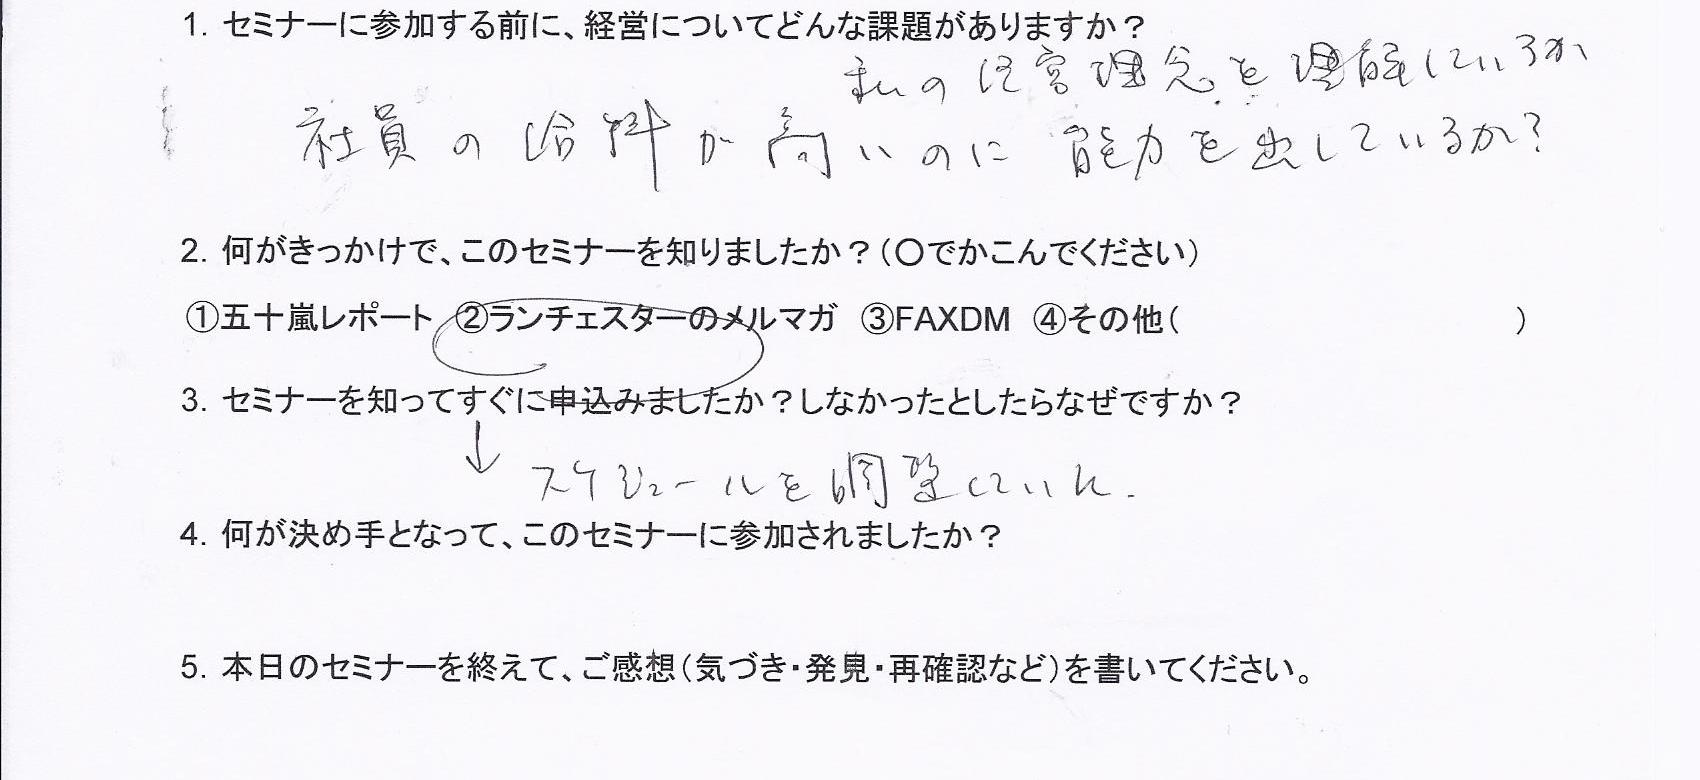 1. セミナーに参加する前に、経営についてどんな課題がありますか？
私の経営理念を理解しているか
社員の給料が高いのに能力を出しているか?
2. 何がきっかけで、このセミナーを知りましたか？(〇でかこんでください)
①五十嵐レポート ②ランチェスターのメルマガ ③FAXDM ④その他( )
3. セミナーを知ってすぐに申込みましたか？しなかったとしたらなぜですか？
↓ スケジュールを調整していた.
4. 何が決め手となって、このセミナーに参加されましたか？
5. 本日のセミナーを終えて、ご感想(気づき・発見・再確認など)を書いてください。